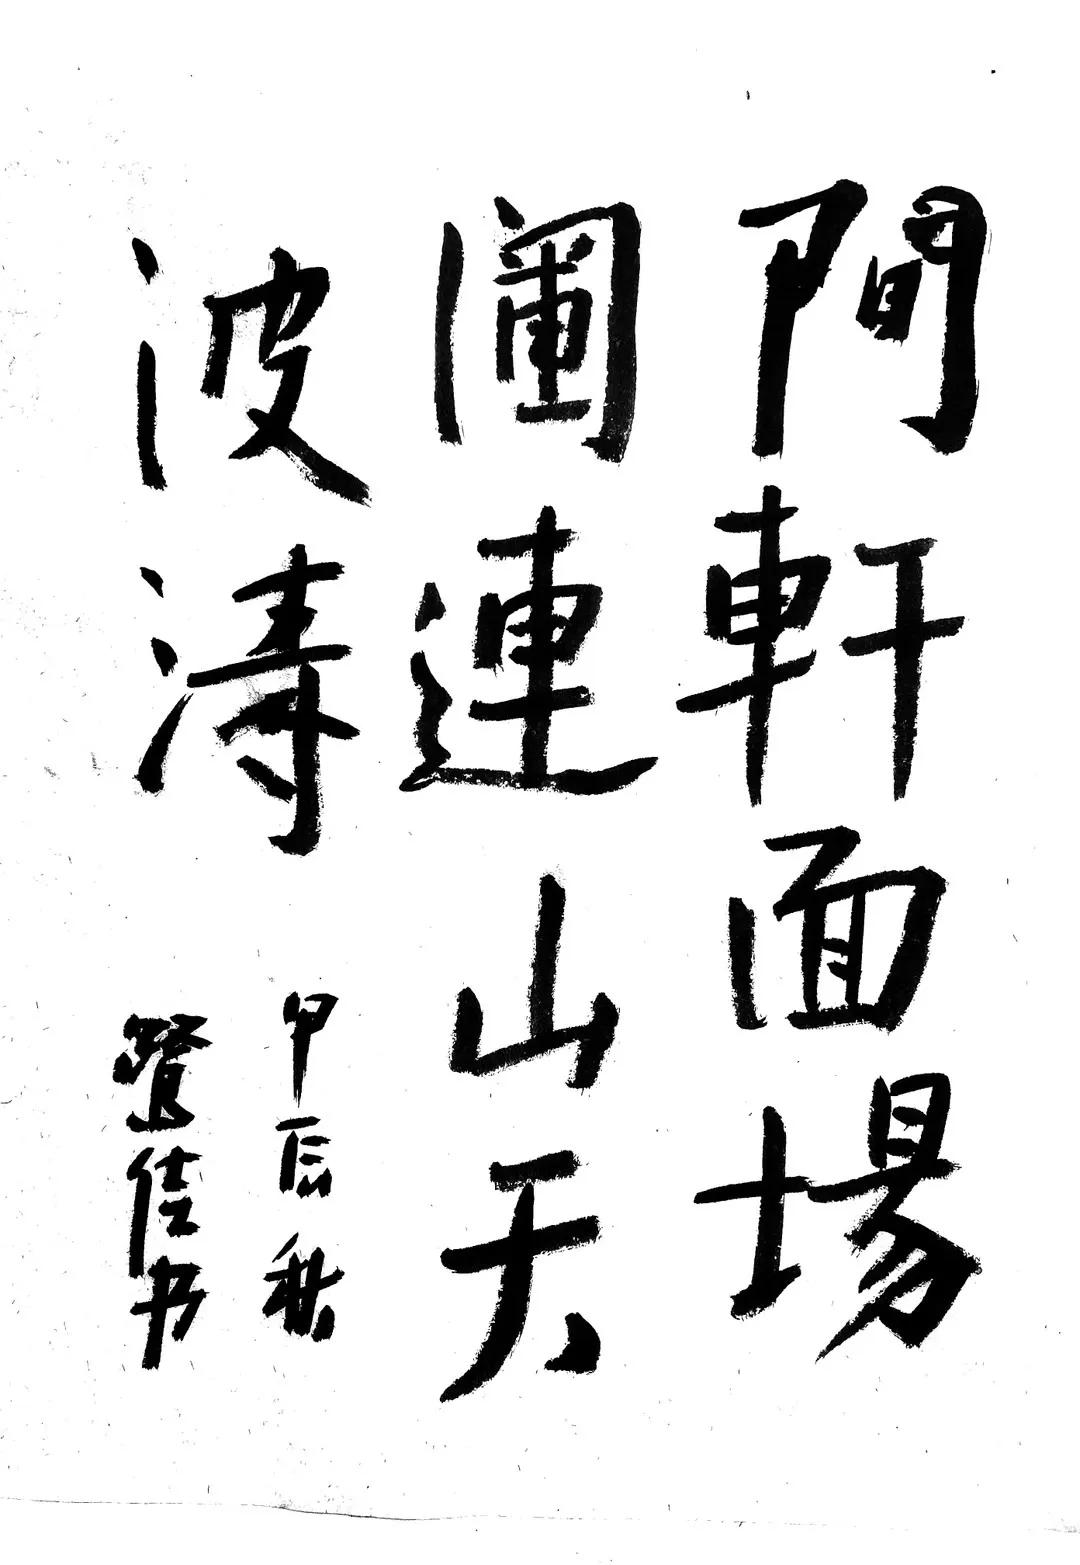 間軒面場
圃連山天
波濤
甲辰秋
佳书